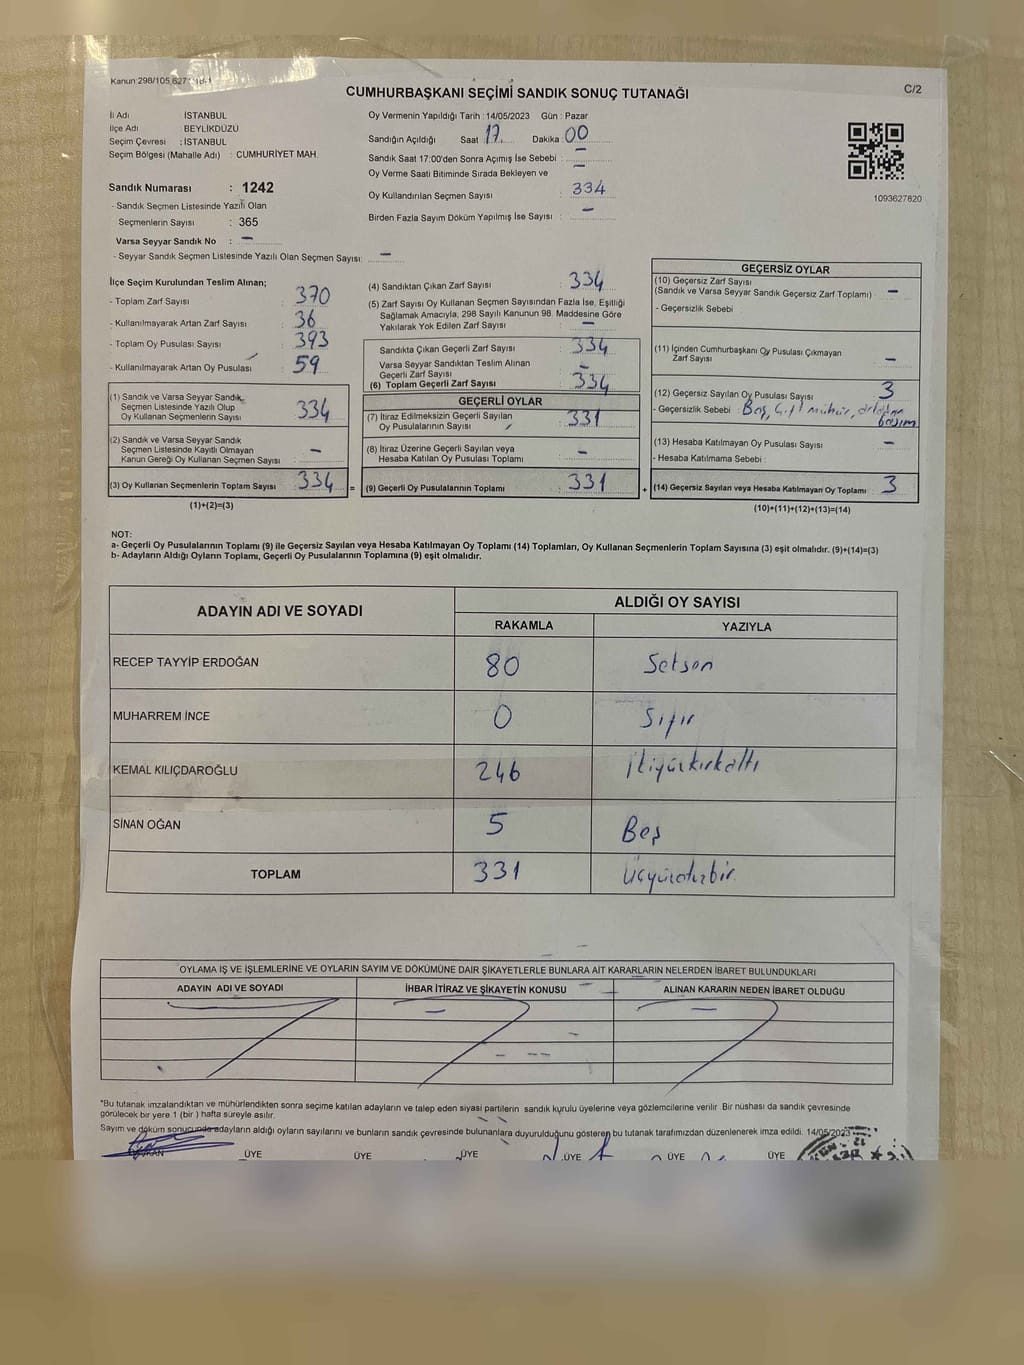 Kanun 298/105,627
CUMHURBAŞKANI SEÇİMİ SANDIK SONUÇ TUTANAĞI
C/2
İl Adı : İSTANBUL
İlçe Adı : BEYLİKDÜZÜ
Seçim Çevresi : İSTANBUL
Seçim Bölgesi (Mahalle Adı) : CUMHURİYET MAH.
Sandık Numarası : 1242
- Sandık Seçmen Listesinde Yazılı Olan
Seçmenlerin Sayısı : 365
Varsa Seyyar Sandık No : –
- Seyyar Sandık Seçmen Listesinde Yazılı Olan Seçmen Sayısı: –
Oy Vermenin Yapıldığı Tarih : 14/05/2023 Gün : Pazar
Sandığın Açıldığı Saat 17. Dakika 00
Sandık Saat 17:00'den Sonra Açımış İse Sebebi : –
Oy Verme Saati Bitiminde Sırada Bekleyen ve –
Oy Kullandırılan Seçmen Sayısı : 334
Birden Fazla Sayım Döküm Yapılmış İse Sayısı : –
1093627820
İlçe Seçim Kurulundan Teslim Alınan;
- Toplam Zarf Sayısı : 370
- Kullanılmayarak Artan Zarf Sayısı : 36
- Toplam Oy Pusulası Sayısı : 393
- Kullanılmayarak Artan Oy Pusulası : 59
(1) Sandık ve Varsa Seyyar Sandık
Seçmen Listesinde Yazılı Olup
Oy Kullanan Seçmenlerin Sayısı : 334
(2) Sandık ve Varsa Seyyar Sandık
Seçmen Listesinde Kayıtlı Olmayan
Kanun Gereği Oy Kullanan Seçmen Sayısı : –
(3) Oy Kullanan Seçmenlerin Toplam Sayısı : 334 =
(1)+(2)=(3)
(4) Sandıktan Çıkan Zarf Sayısı : 334
(5) Zarf Sayısı Oy Kullanan Seçmen Sayısından Fazla İse, Eşitliği
Sağlamak Amacıyla, 298 Sayılı Kanunun 98. Maddesine Göre
Yakılarak Yok Edilen Zarf Sayısı : –
Sandıkta Çıkan Geçerli Zarf Sayısı : 334
Varsa Seyyar Sandıktan Teslim Alınan
Geçerli Zarf Sayısı : –
(6) Toplam Geçerli Zarf Sayısı : 334
GEÇERLİ OYLAR
(7) İtiraz Edilmeksizin Geçerli Sayılan
Oy Pusulalarının Sayısı : 331
(8) İtiraz Üzerine Geçerli Sayılan veya
Hesaba Katılan Oy Pusulası Toplamı : –
(9) Geçerli Oy Pusulalarının Toplamı : 331 +
GEÇERSİZ OYLAR
(10) Geçersiz Zarf Sayısı
(Sandık ve Varsa Seyyar Sandık Geçersiz Zarf Toplamı) : –
- Geçersizlik Sebebi :
(11) İçinden Cumhurbaşkanı Oy Pusulası Çıkmayan
Zarf Sayısı : –
(12) Geçersiz Sayılan Oy Pusulası Sayısı : 3
- Geçersizlik Sebebi : Boş, Çift mühür,
(13) Hesaba Katılmayan Oy Pusulası Sayısı : –
- Hesaba Katılmama Sebebi :
(14) Geçersiz Sayılan veya Hesaba Katılmayan Oy Toplamı : 3
(10)+(11)+(12)+(13)=(14)
NOT:
a- Geçerli Oy Pusulalarının Toplamı (9) ile Geçersiz Sayılan veya Hesaba Katılmayan Oy Toplamı (14) Toplamları, Oy Kullanan Seçmenlerin Toplam Sayısına (3) eşit olmalıdır. (9)+(14)=(3)
b- Adayların Aldığı Oyların Toplamı, Geçerli Oy Pusulalarının Toplamına (9) eşit olmalıdır.
ADAYIN ADI VE SOYADI
ALDIĞI OY SAYISI
RAKAMLA YAZIYLA
RECEP TAYYİP ERDOĞAN 80 Seksen
MUHARREM İNCE 0 Sıfır
KEMAL KILIÇDAROĞLU 246 İkiyüzkırkaltı
SİNAN OĞAN 5 Beş
TOPLAM 331 Üçyüzotuzbir
OYLAMA İŞ VE İŞLEMLERİNE VE OYLARIN SAYIM VE DÖKÜMÜNE DAİR ŞİKAYETLERLE BUNLARA AİT KARARLARIN NELERDEN İBARET BULUNDUKLARI
ADAYIN ADI VE SOYADI İHBAR İTİRAZ VE ŞİKAYETİN KONUSU ALINAN KARARIN NEDEN İBARET OLDUĞU
*Bu tutanak imzalandıktan ve mühürlendikten sonra seçime katılan adayların ve talep eden siyasi partilerin sandık kurulu üyelerine veya gözlemcilerine verilir. Bir nüshası da sandık çevresinde
görülecek bir yere 1 (bir ) hafta süreyle asılır.
Sayım ve döküm sonucunda adayların aldığı oyların sayılarını ve bunların sandık çevresinde bulunanlara duyurulduğunu gösteren bu tutanak tarafımızdan düzenlenerek imza edildi. 14/05/2023
ÜYE ÜYE ÜYE ÜYE ÜYE ÜYE